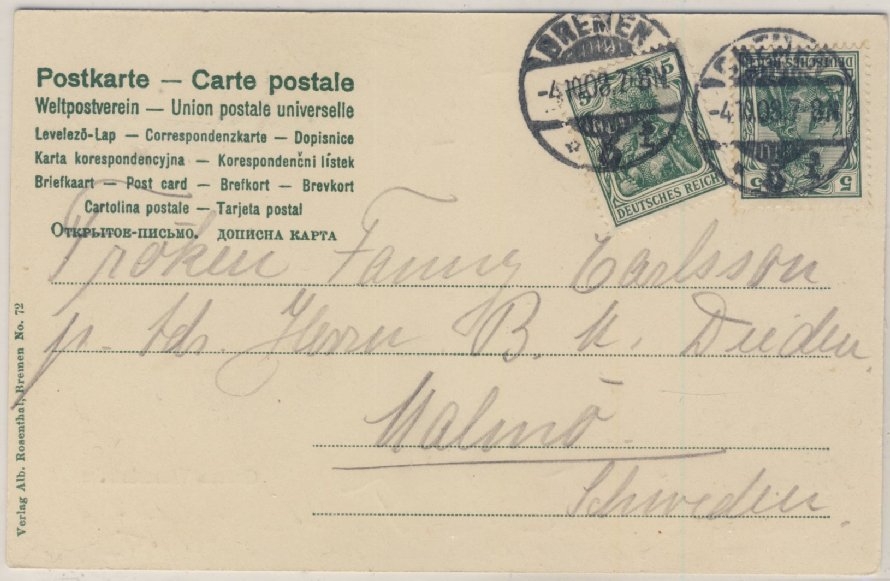 Postkarte — Carte postale
Weltpostverein — Union postale universelle
Levelező-Lap — Correspondenzkarte — Dopisnice
Karta korespondencyjna — Korespondenční lístek
Briefkaart — Post card — Brefkort — Brevkort
Cartolina postale — Tarjeta postal
Открытое-письмо. дописна карта
BREMEN
-4.10.03.7-8N
5
DEUTSCHES REICH
-4.10.03.7-8N
DEUTSCHES REICH
5
Fröken Fanny Carlsson
p. Adr. Herrn B. K. Dieden.
Malmö
Schweden
Verlag Alb. Rosenthal, Bremen No. 72